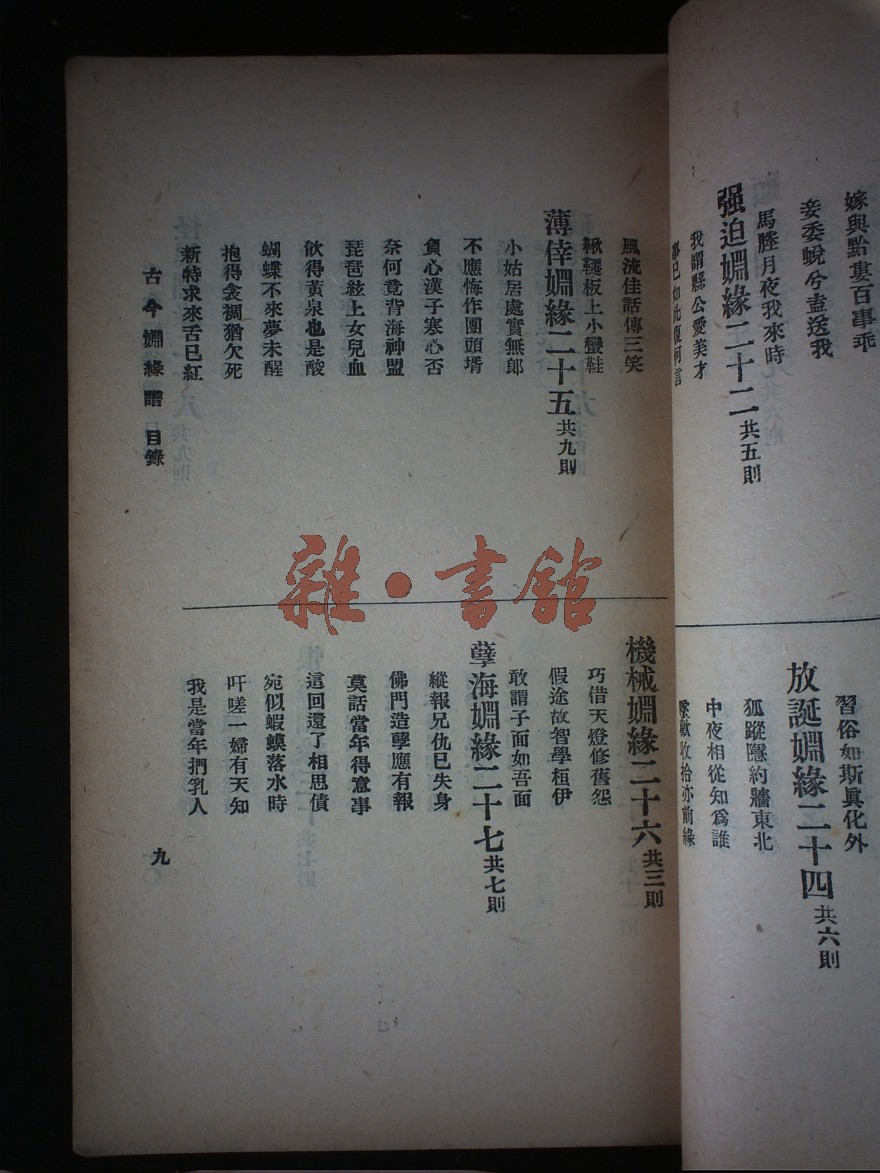 嫁與黔婁百事乖
妾委蛻兮盍送我
馬塍月夜我來時
强迫婣緣二十二共五則
我謂縣公愛美才
事已如此復何言
習俗如斯眞化外
放誕婣緣二十四共六則
狐蹤隱約牆東北
中夜相從知爲誰
收拾亦前緣
風流佳話傳三笑
鞦韆板上小蠻鞋
小姑居處實無郎
薄倖婣緣二十五共九則
不應悔作團頭壻
負心漢子寒心否
奈何竟背海神盟
琵琶絃上女兒血
飲得黃泉也是酸
蝴蝶不來夢未醒
抱得衾裯猶欠死
新特求來舌已紅
機械婣緣二十六共三則
巧借天燈修舊怨
假途故智學桓伊
敢謂子面如吾面
孽海婣緣二十七共七則
縱報兄仇已失身
佛門造孽應有報
莫話當年得意事
這回還了相思債
宛似蝦蟆落水時
吁嗟一婦有天知
我是當年捫乳人
古今婣緣譜 目錄
九
雜·書館